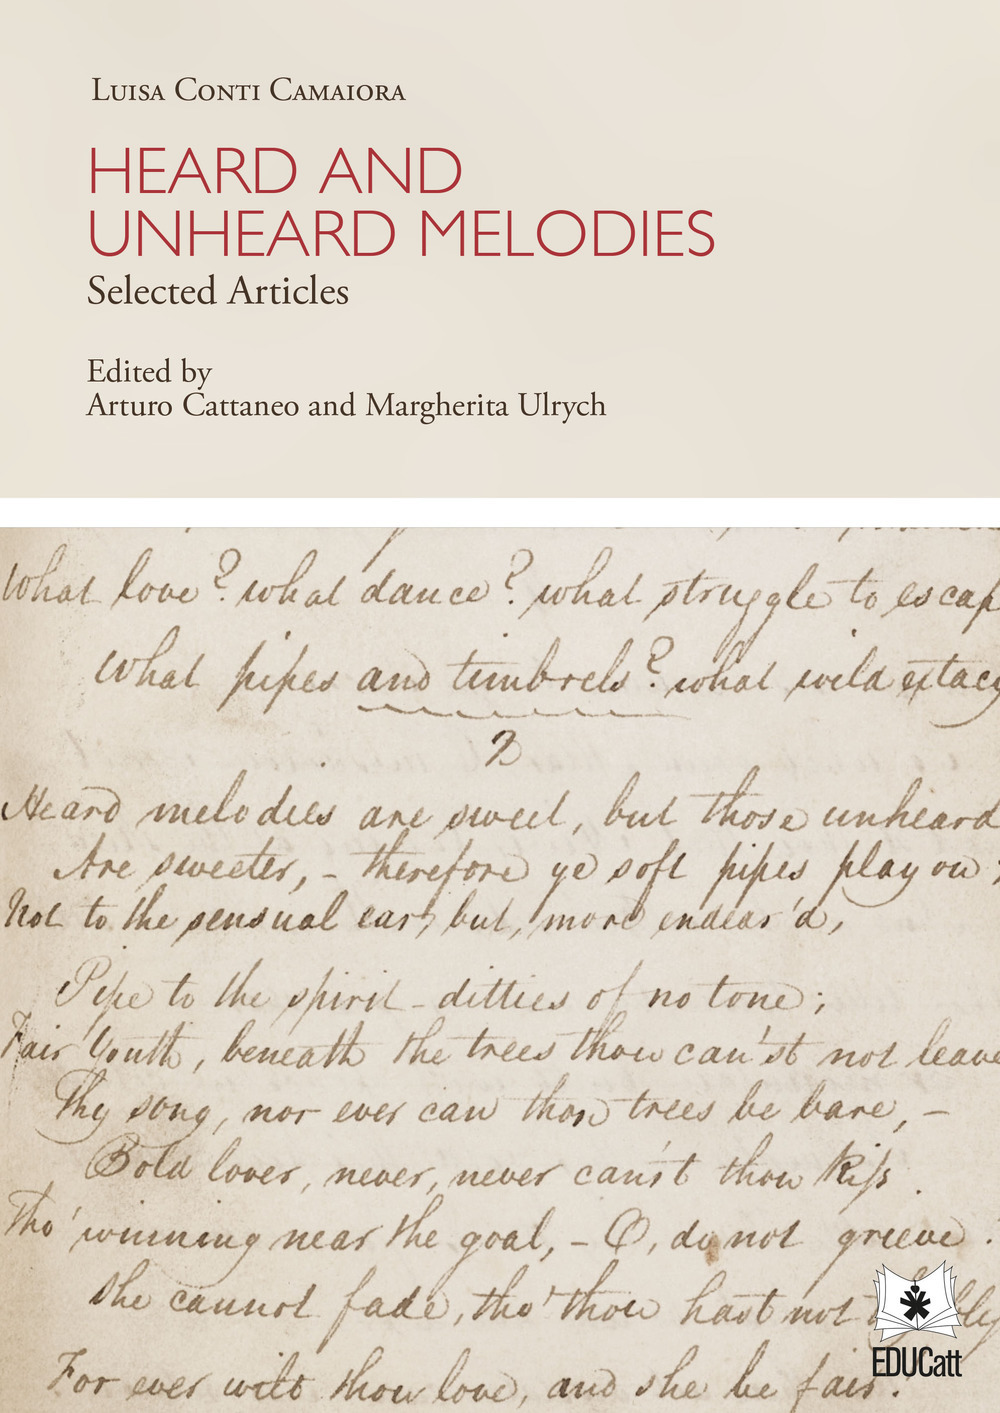 LUISA CONTI CAMAIORA
HEARD AND
UNHEARD MELODIES
Selected Articles
Edited by
Arturo Cattaneo and Margherita Ulrych
What love? what dance? what struggle to escap
What pipes and timbrels? what wild extacy
2
Heard melodies are sweet, but those unheard
Are sweeter, – therefore ye soft pipes play on;
Not to the sensual ear, but, more endear'd,
Pipe to the spirit – ditties of no tone;
Fair Youth, beneath the trees thou can'st not leave
Thy song, nor ever can those trees be bare, –
Bold lover, never, never can'st thou kiss.
Tho' winning near the goal, – O, do not grieve.
She cannot fade, tho' thou hast not thy
For ever wilt thou love, and she be fair.
EDUCatt